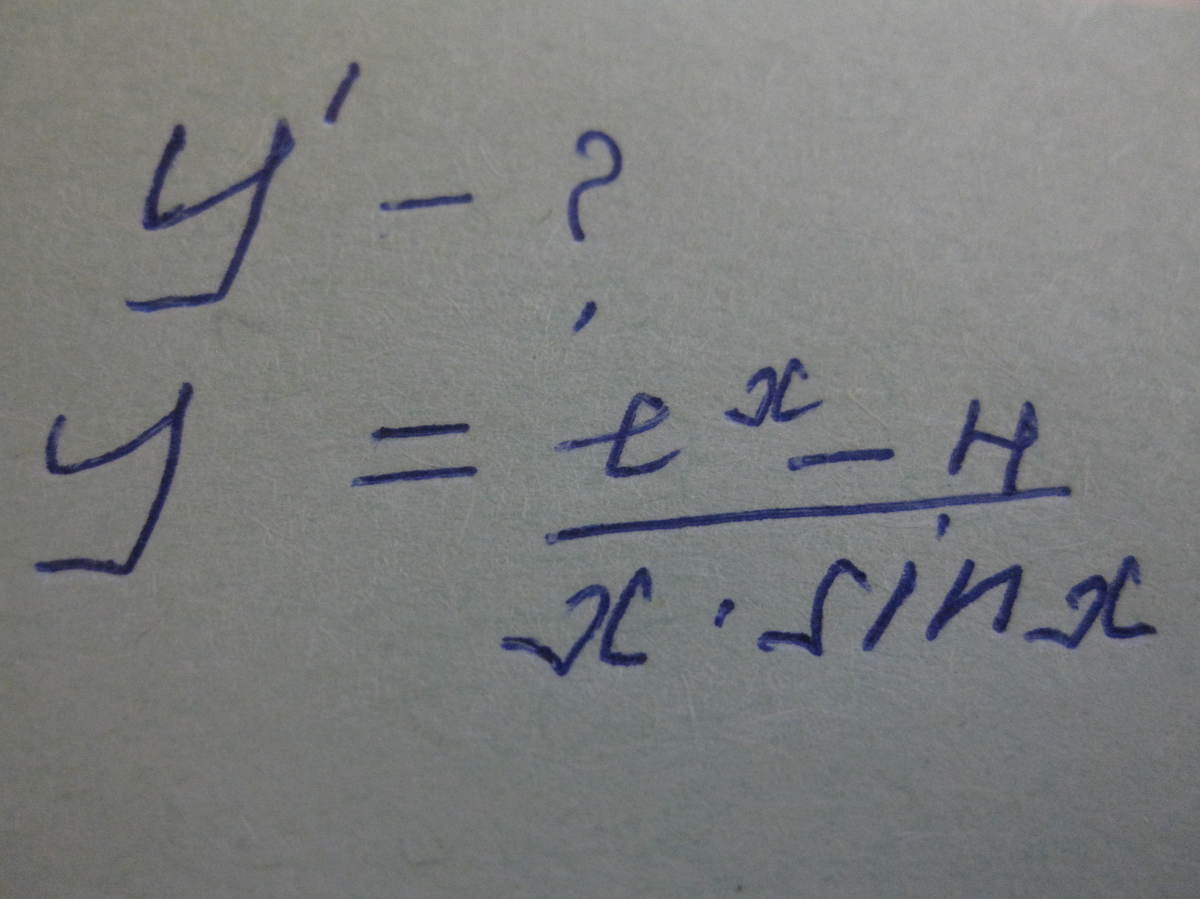 y' - ?
y = (e^x - 4) / (x · sin x)